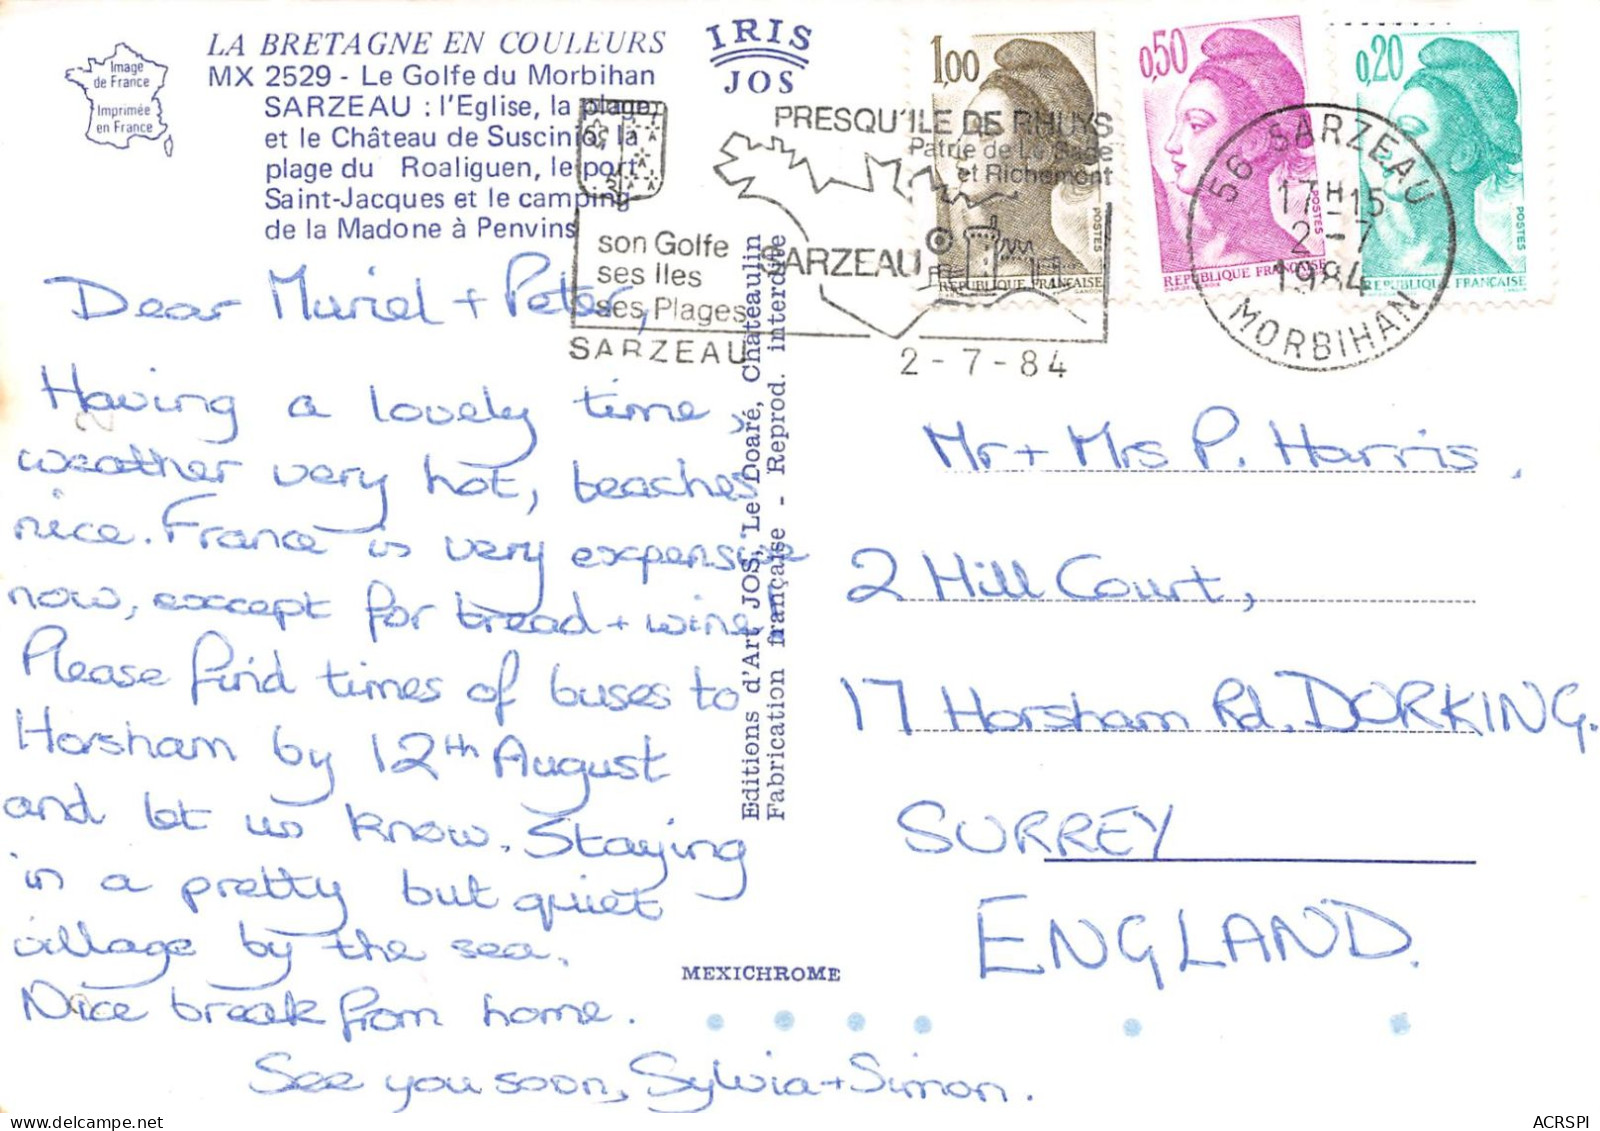 Image
de France
Imprimée
en France
LA BRETAGNE EN COULEURS
MX 2529 - Le Golfe du Morbihan
SARZEAU : l'Eglise, la plage,
et le Château de Suscinio, la
plage du Roaliguen, le port
Saint-Jacques et le camping
de la Madone à Penvins
IRIS
JOS
1,00
POSTES
REPUBLIQUE FRANÇAISE
0,50
POSTES
REPUBLIQUE FRANÇAISE
0,20
POSTES
REPUBLIQUE FRANÇAISE
PRESQU'ILE DE RHUYS
Patrie de Le Sage
et Richemont
son Golfe
ses Iles
ses Plages
SARZEAU
SARZEAU
2-7-84
56 SARZEAU
17H15
2-7
1984
MORBIHAN
Dear Muriel + Peter,
Having a lovely time,
weather very hot, beaches
nice. France is very expensive
now, except for bread + wine.
Please find times of buses to
Horsham by 12th August
and let us know. Staying
in a pretty but quiet
village by the sea.
Nice break from home.
See you soon, Sylvia + Simon.
Editions d'Art JOS, Le Doaré, Chateaulin
Fabrication française - Reprod. interdite
MEXICHROME
Mr + Mrs P. Harris.
2 Hill Court,
17 Horsham Rd. DORKING.
SURREY
ENGLAND.
ACRSPI